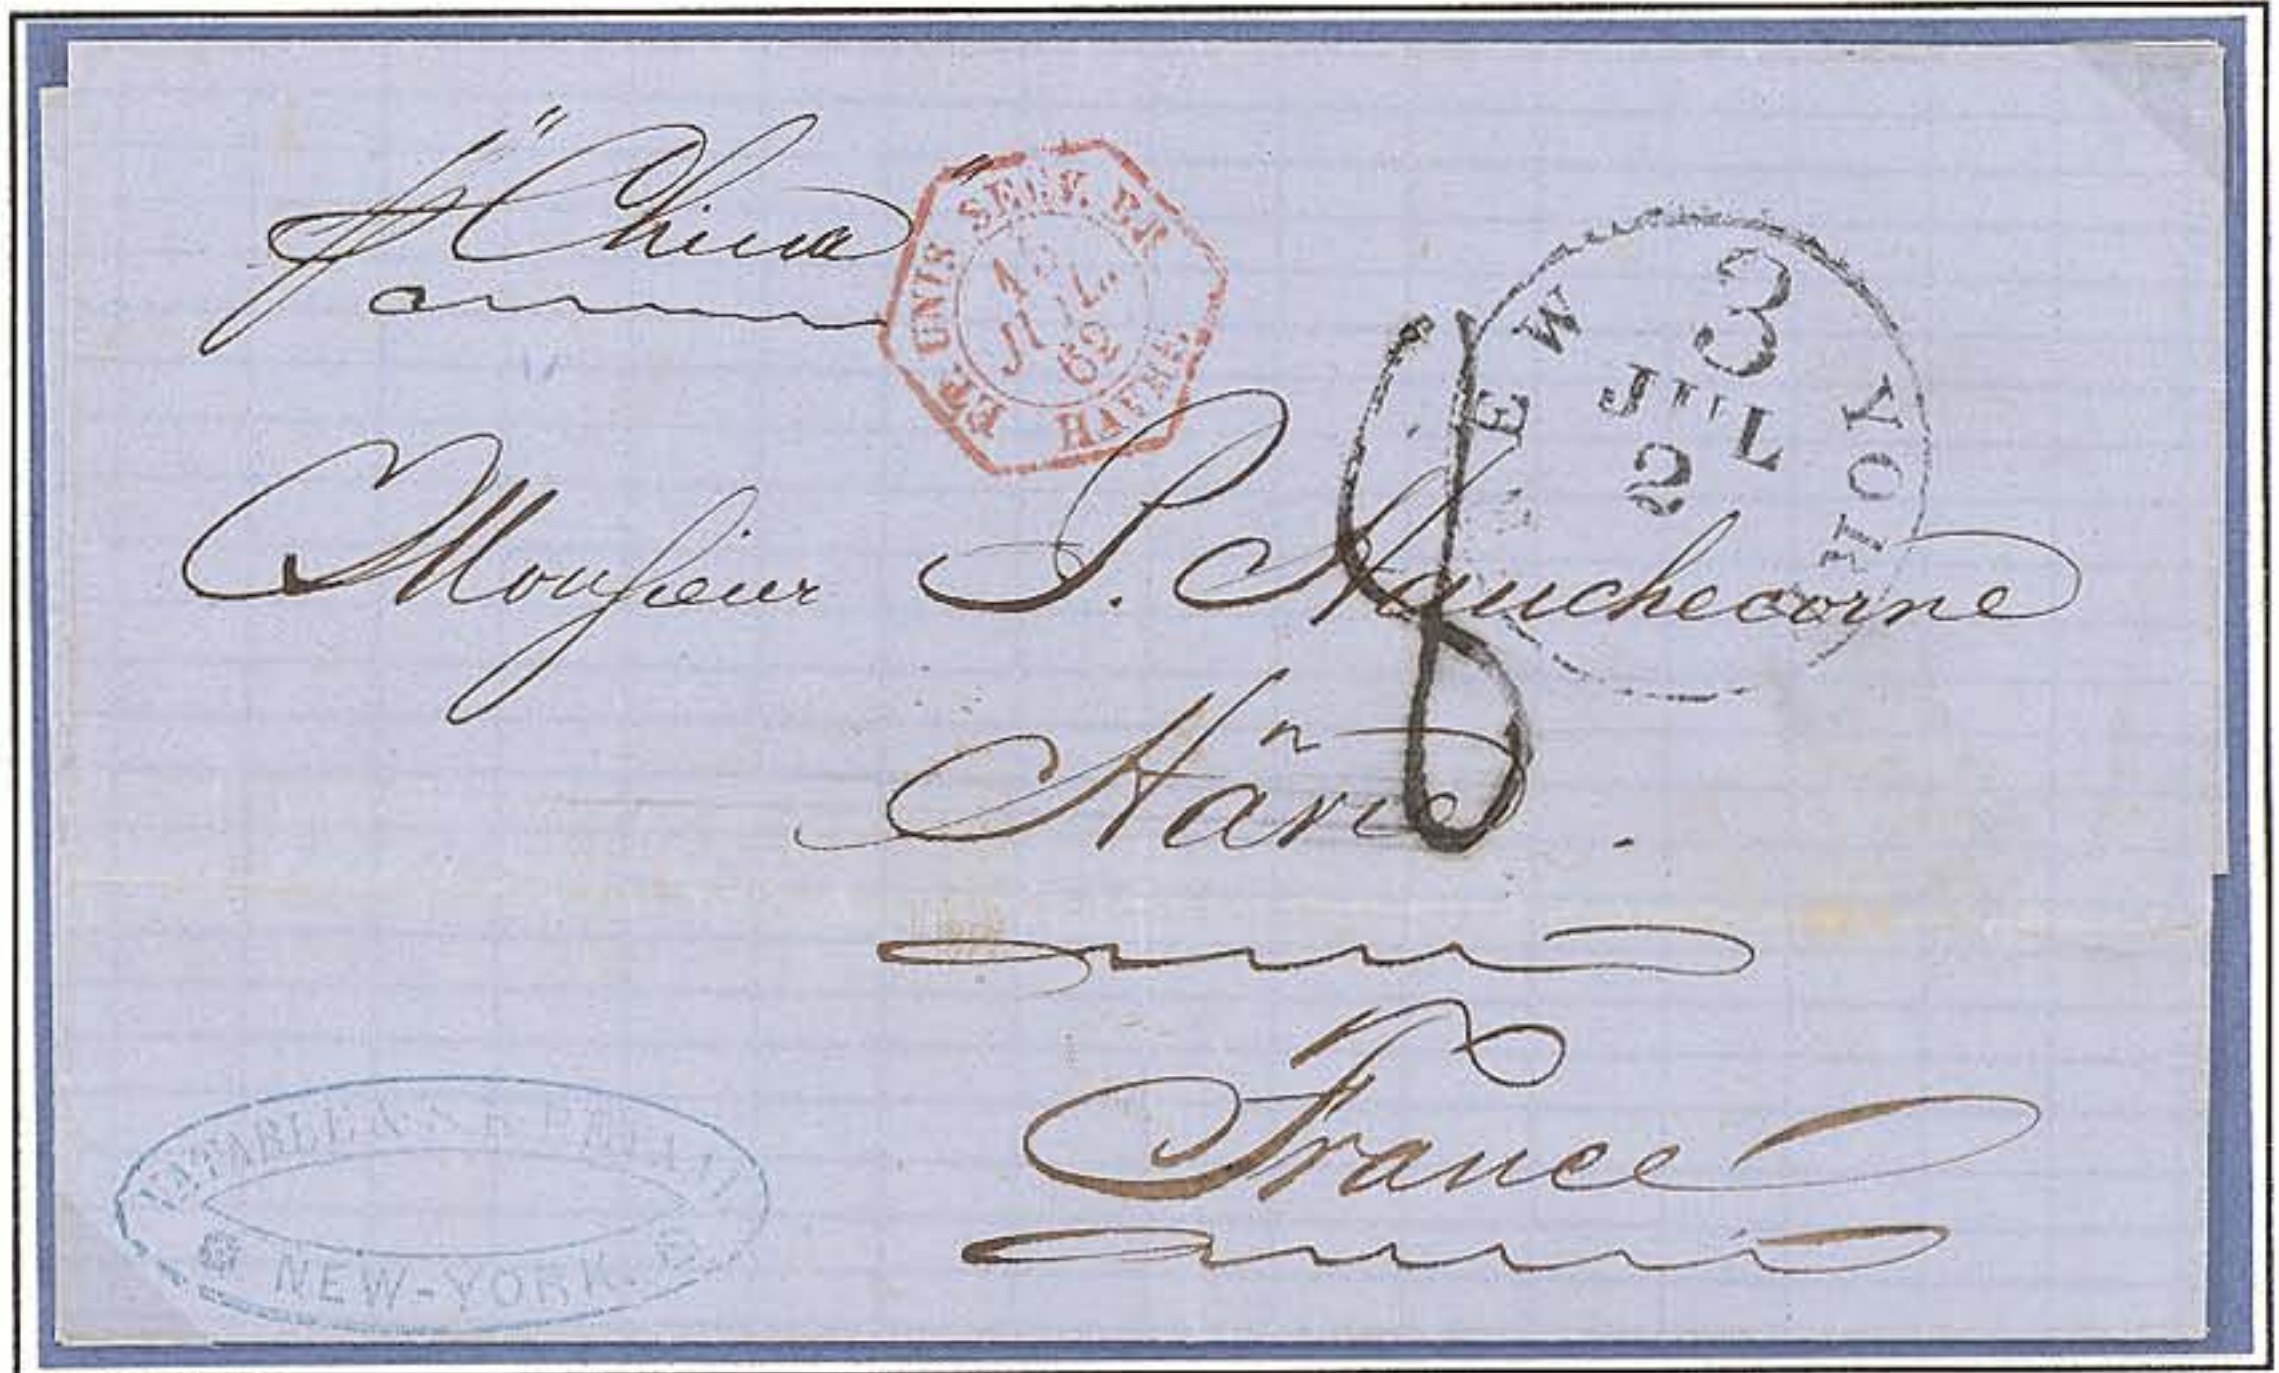 pr "China"
ET. UNIS SERV. BR.
JUIL.
62
HAVRE
NEW YORK
3
JUL
2
8
Monsieur P. Hauchecorne
Hâvre.
France
NEW-YORK.